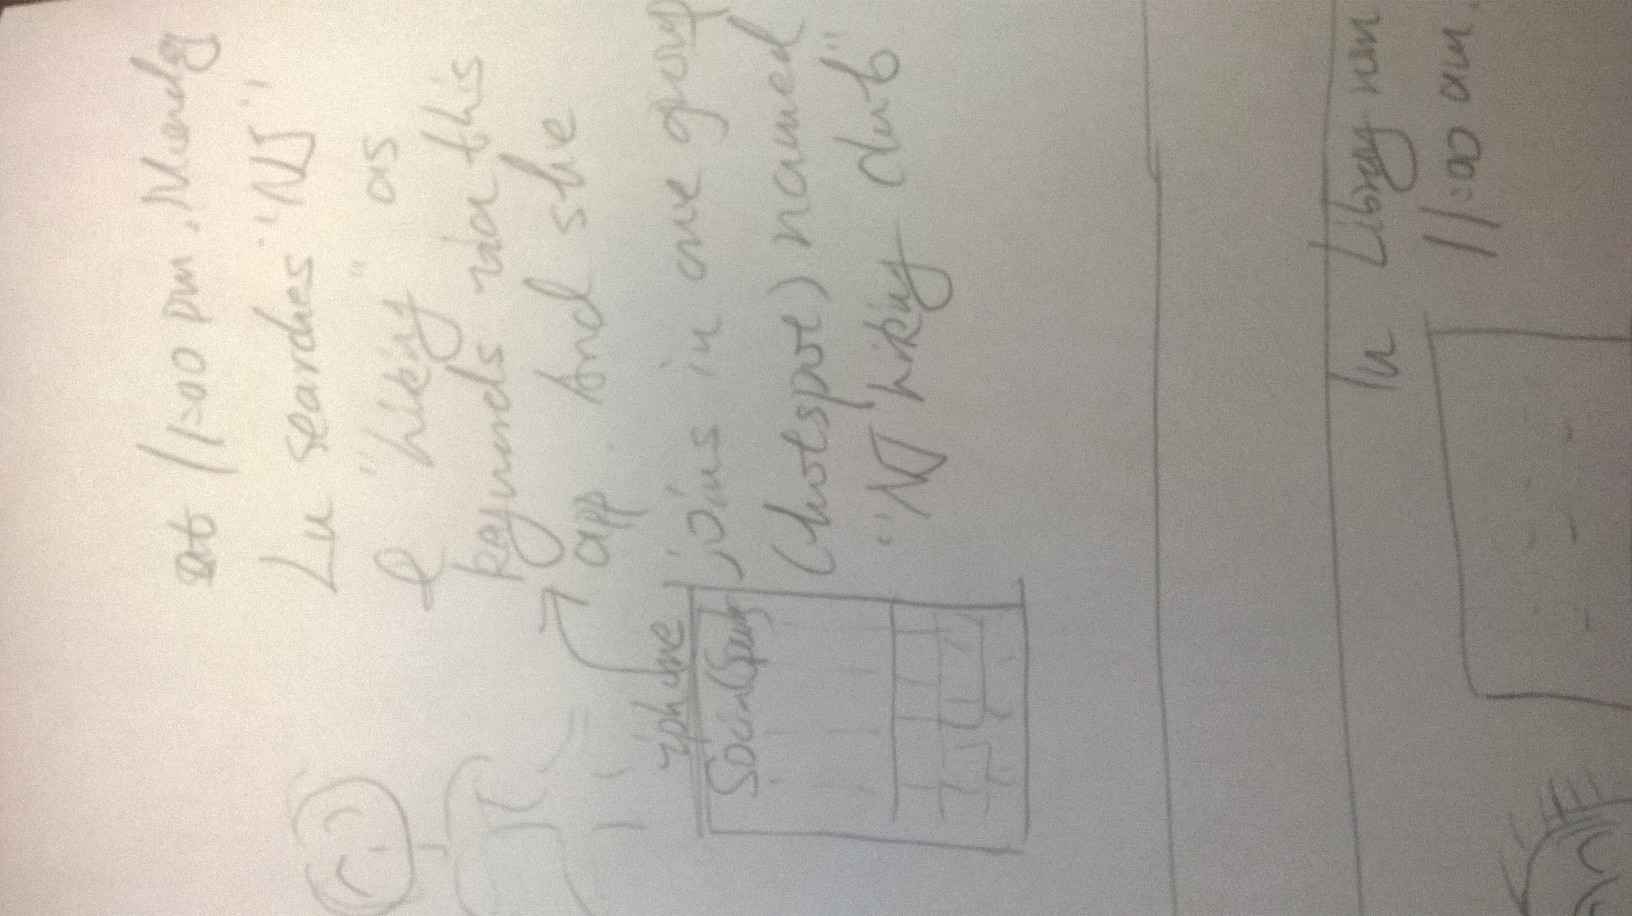 at 11:00 pm, Monday
Lu searches "NJ"
& "hiking" as
keywords via this
app. And she
joins in one group
(hotspot) named
"NJ hiking club"
iphone
In Library room
11:00 am.